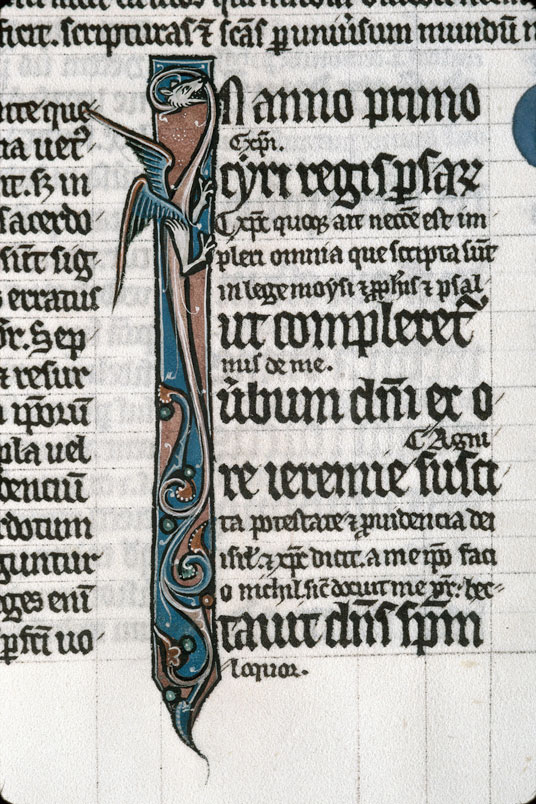 ficit. scripturas ⁊ scãs ꝑ uniuersum mundũ
nte que
ia uet᷒
nt. sꝫ in
sacerdo
sũt sig
erratus
Sep
⁊ resur
ipõrũ
pla uel
denciũ
dotum
guntur
eges enĩ
uo-
N anno primo
cyri regis psaꝝ
Exp̃c quoqꝫ ait necc̃e est im
pleri omnia que scripta sũt
in lege moysi ⁊ ꝓph̃is ⁊ psal
ut compleret᷒
mis de me.
ũbum dñi ex o
Agni
re ieremie susci
ta potestate ⁊ ꝓuidencia dei
⁊ xp̃c dicit. a me ip̃o faci
o nichil. sic̃ docuit me pr̃: hec
tauit dñs sp̃m
loquor.